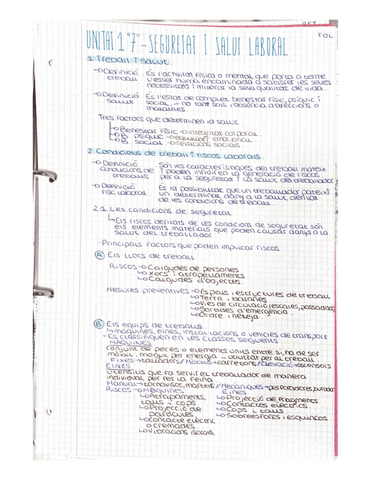 FOL
UNITAT 1 "7" - SEGURETAT I SALUT LABORAL
1. Treball i salut
→Definició treball: És l'activitat física o mental que porta a terme
l'ésser humà encaminada a satisfer les seves
necessitats i millorar la seva qualitat de vida.
→Definició salut: És l'estat de complet benestar físic, psíquic i
social, no tan sols l'absència d'afeccions o
malalties.
Tres factors que determinen la salut
↳Benestar físic → integritat corporal
↳B. psíquic → equilibri emocional
↳B. social → relacions socials
2. Condicions de treball i riscos laborals.
→Definició condicions de treball: Són les característiques del treball
i poden influir en la generació de riscos
per a la seguretat i la salut del treballador
→Definició risc laboral: És la possibilitat que un treballador pateixi
un determinat dany a la salut derivat
de les condicions de treball.
2.1. Les condicions de seguretat.
↳Els riscos derivats de les condicions de seguretat són
els elements materials que poden causar danys a la
salut del treballador
Principals factors que poden implicar riscos
A Els llocs de treball
Riscos→Caigudes de persones
↳Xocs i atropellaments
↳Caigudes d'objectes
Mesures preventives→Espais i estructures de treball
↳Terra i baranes
↳Vies de circulació (escales,
↳Sortides d'emergència
↳Ordre i neteja
B Els equips de treball
↳màquines, eines, instal·lacions o vehicles de transport
↳Es classifiquen en les classes següents
MÀQUINES
Conjunt de peces o elements units entre si, ha de ser
mòbil, mogut per energia utilitzat per al treball
EINES
Utensilis que fa servir el treballador de manera
individual per fer la feina
Manual→tornavisos, martells / Mecàniques→perforadores,
Riscos→Màquines
↳Atrapaments,
talls i cops
↳Projecció de
partícules
↳Contacte elèctric
o cremades
↳Vibracions, soroll
Eines
↳Projecció de fragments
↳Contactes elèctrics
↳Cops i talls
↳Sobreesforços i esquinços